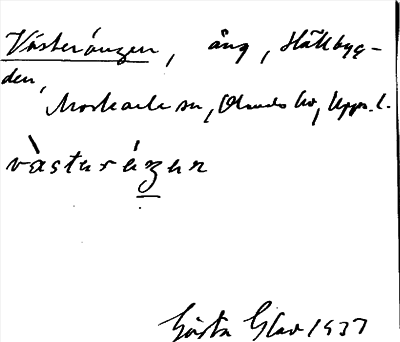 Västerängen, äng, Hållbyg-
den,
Morkarla sn, Olands hd, Upps. l.
vàstæréŋæn
Gösta Glav 1937